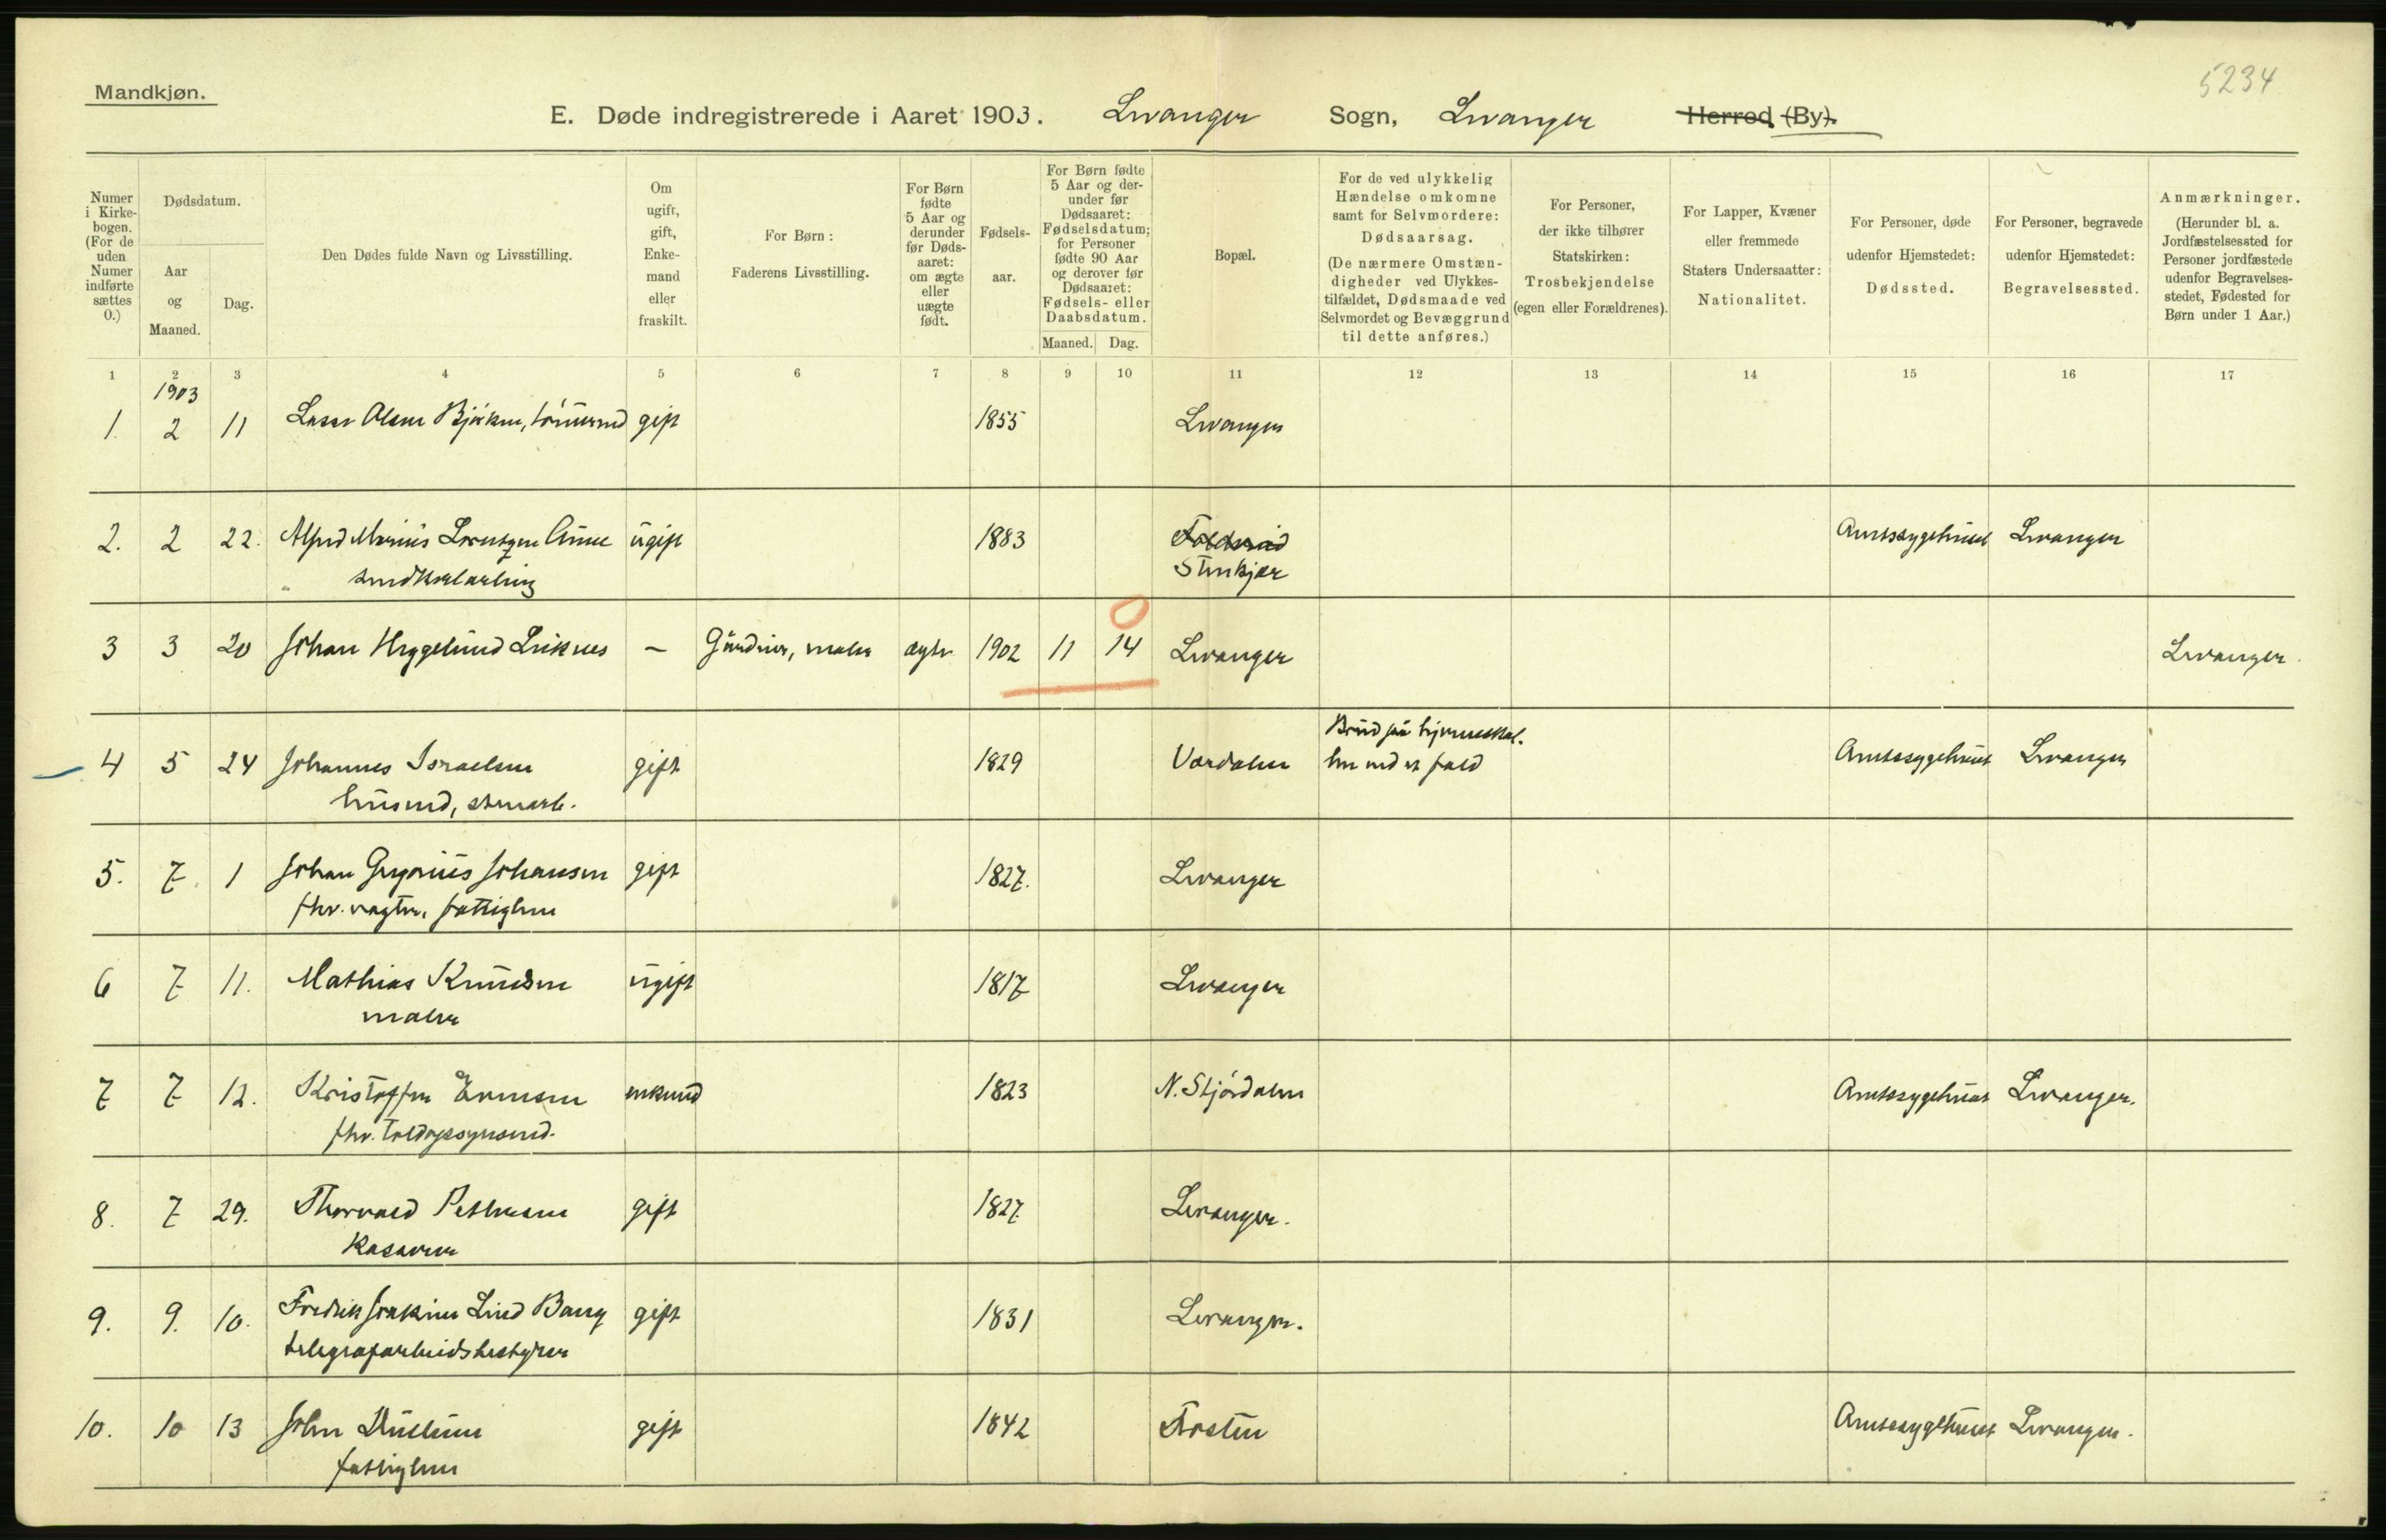 Mandkjøn.
5234
E. Døde indregistrerede i Aaret 1903. Levanger Sogn, Levanger Herred (By).
Numer i Kirkebogen. (For de uden Numer indførte sættes 0.)
Dødsdatum.
Aar og Maaned.
Dag.
Den Dødes fulde Navn og Livsstilling.
Om ugift, gift, Enkemand eller fraskilt.
For Børn: Faderens Livsstilling.
For Børn fødte 5 Aar og derunder før Dødsaaret: om ægte eller uægte født.
Fødselsaar.
For Børn fødte 5 Aar og derunder før Dødsaaret: Fødselsdatum; for Personer fødte 90 Aar og derover før Dødsaaret: Fødsels- eller Daabsdatum.
Maaned. Dag.
Bopæl.
For de ved ulykkelig Hændelse omkomne samt for Selvmordere: Dødsaarsag. (De nærmere Omstændigheder ved Ulykkestilfældet, Dødsmaade ved Selvmordet og Bevæggrund til dette anføres.)
For Personer, der ikke tilhører Statskirken: Trosbekjendelse (egen eller Forældrenes).
For Lapper, Kvæner eller fremmede Staters Undersaatter: Nationalitet.
For Personer, døde udenfor Hjemstedet: Dødssted.
For Personer, begravede udenfor Hjemstedet: Begravelsessted.
Anmærkninger. (Herunder bl. a. Jordfæstelsessted for Personer jordfæstede udenfor Begravelsesstedet, Fødested for Børn under 1 Aar.)
1 2 3 4 5 6 7 8 9 10 11 12 13 14 15 16 17
1903
1. 2 11 Lasse Olsen gift 1855 Levanger
2. 2 22. Alfred Marius Lorentzen ugift 1883 Amtssygehuset Levanger
Stenkjær
0
3 3 20 Johan Heggelund Leiknes – Gårdeier, maler ægte 1902 11 14 Levanger Levanger.
Brud på hjerneskal.
4 5 24 Johannes Israelsen gift 1829 Værdalen len ved et fald Amtssygehuset Levanger
husmd, stenarb.
5. 7. 1 Johan Gregorius Johansen gift 1827. Levanger
fhv. vægter, fattiglem
6 7 11. Mathias Knudsen ugift 1817 Levanger
maler
7 7 12. Kristoffer Evensen enkemd 1823 N. Stjørdalen Amtssygehuset Levanger.
fhv. toldopsynsmd.
8. 7 29. Thorvald Petersen gift 1827 Levanger.
Kasserer
9. 9. 10. Fredrik Joakim Lind Bang gift 1831 Levanger.
telegrafarbeidsbestyrer
10. 10 13 John Kullum gift 1842 Frosten Amtssygehuset Levanger.
fattiglem